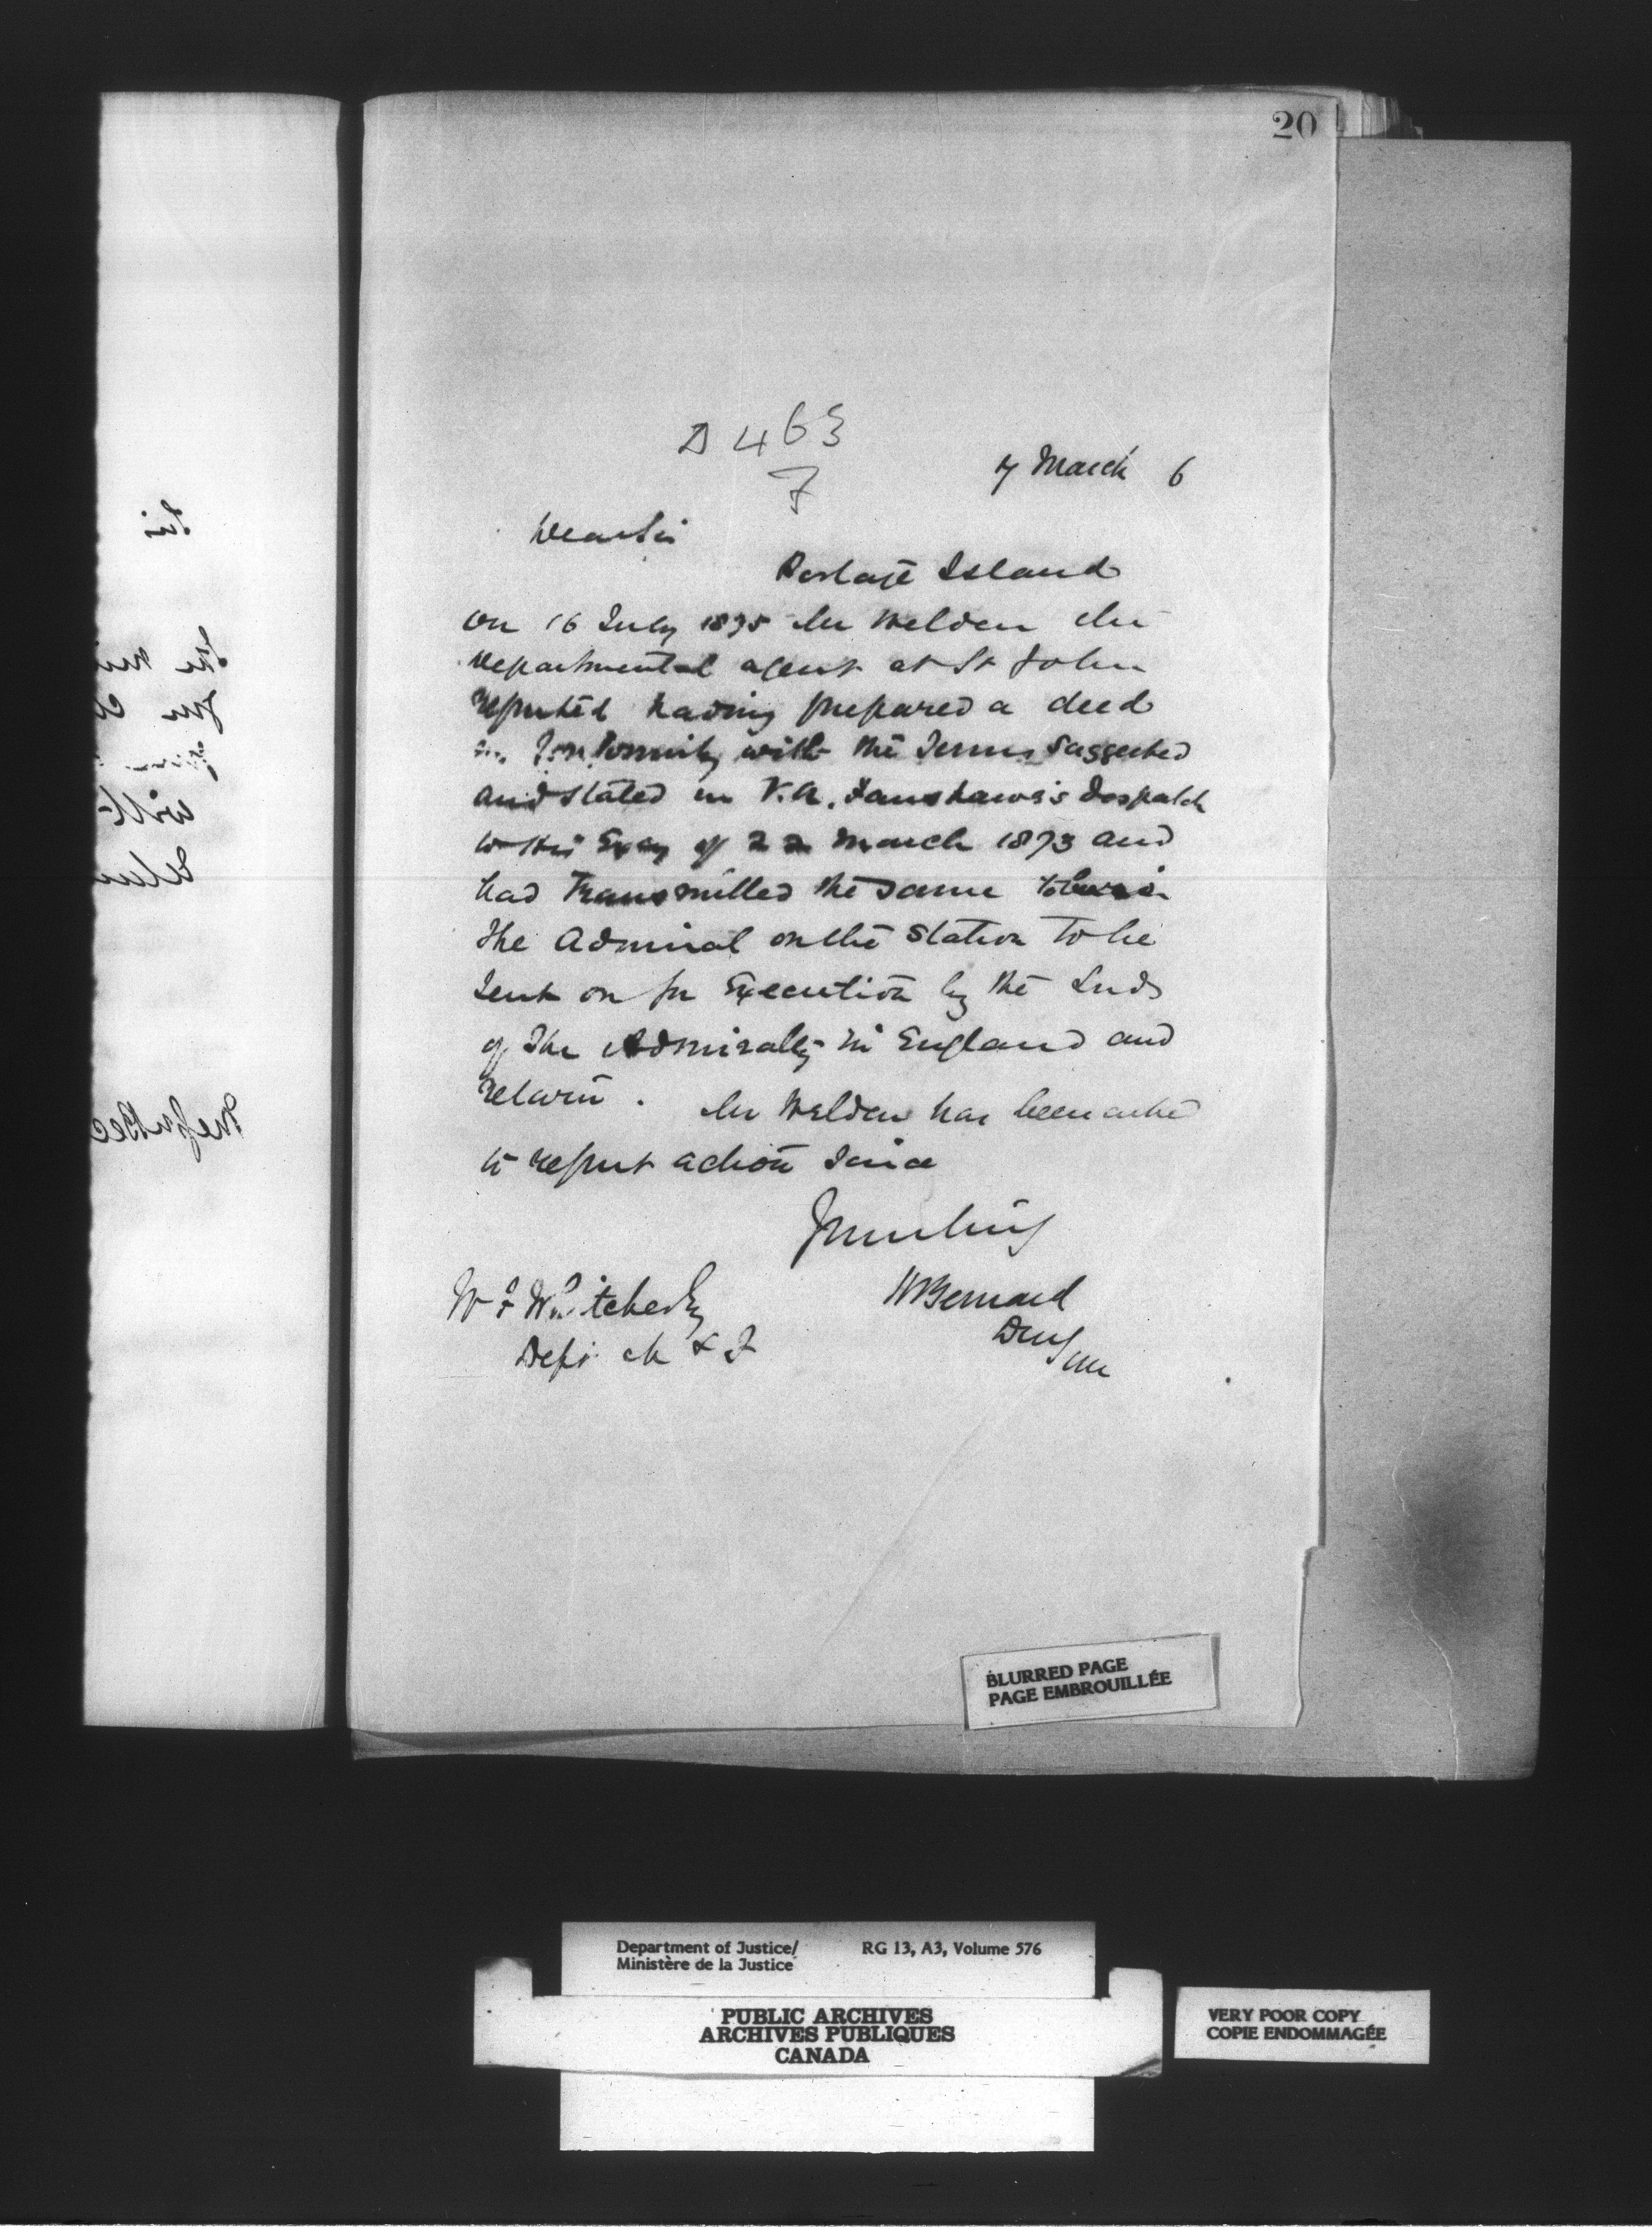 20
D 463
7
7 March 6
Dear Sir
Portage Island
On 16 July 1875 Mr Weldon the
Departmental agent at St John
reported having prepared a deed
in Conformity with the Terms suggested
and stated in V.A. Fanshawe's Despatch
to His Excy of 22 March 1873 and
had Transmitted the same to
the Admiral on the Station to be
sent on for Execution by the Lords
of the Admiralty in England and
return. Mr Weldon has been asked
to report action since
Yours truly
W F Whitcher Esq
HBernard
Dept M & F
BLURRED PAGE
PAGE EMBROUILLÉE
Department of Justice/ RG 13, A3, Volume 576
Ministère de la Justice
PUBLIC ARCHIVES
ARCHIVES PUBLIQUES
CANADA
VERY POOR COPY
COPIE ENDOMMAGÉE